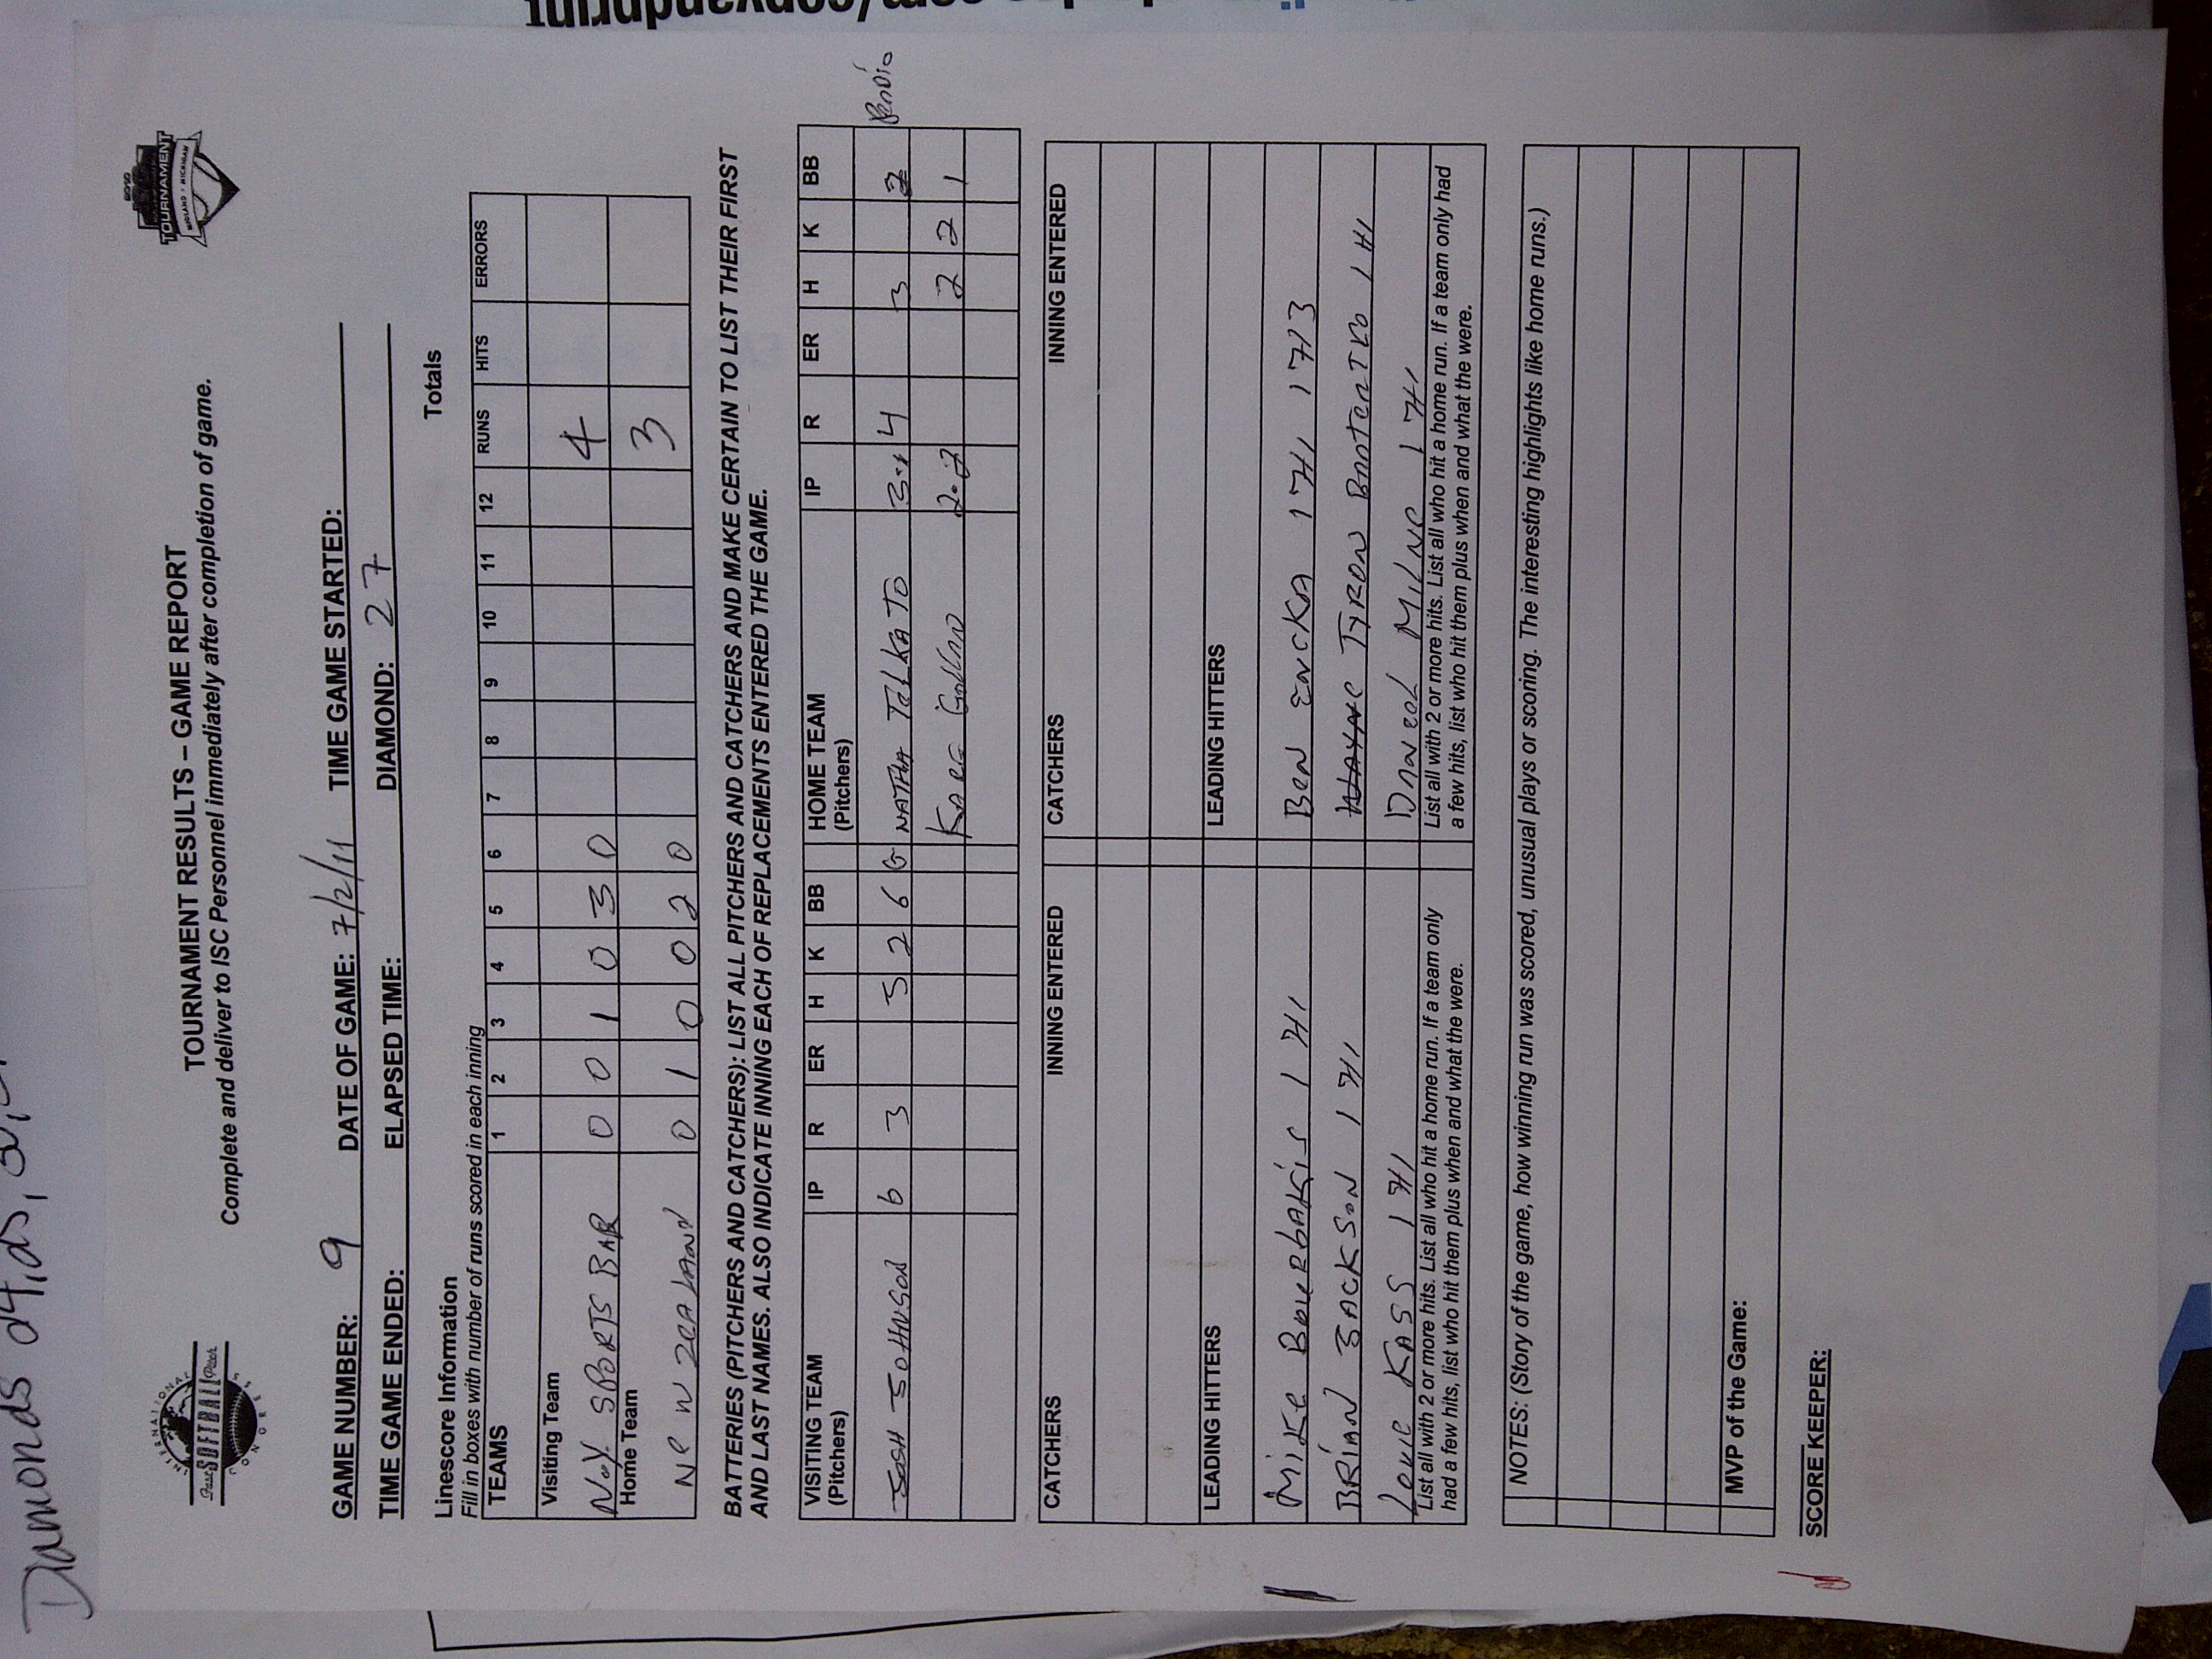 TOURNAMENT
TOURNAMENT RESULTS – GAME REPORT
Complete and deliver to ISC Personnel immediately after completion of game.
INTERNATIONAL
SOFTBALL
CONGRESS
GAME NUMBER: 9 DATE OF GAME: 7/2/11 TIME GAME STARTED:
TIME GAME ENDED: ELAPSED TIME: DIAMOND: 27
Linescore Information Totals
Fill in boxes with number of runs scored in each inning
TEAMS 1 2 3 4 5 6 7 8 9 10 11 12 RUNS HITS ERRORS
Visiting Team
N.Y. SPORTS BAR 0 0 1 0 3 0 4
Home Team
NEW ZEALAND 0 1 0 0 2 0 3
BATTERIES (PITCHERS AND CATCHERS): LIST ALL PITCHERS AND CATCHERS AND MAKE CERTAIN TO LIST THEIR FIRST
AND LAST NAMES. ALSO INDICATE INNING EACH OF REPLACEMENTS ENTERED THE GAME.
VISITING TEAM IP R ER H K BB HOME TEAM IP R ER H K BB
(Pitchers) (Pitchers)
JOSH JOHNSON 6 3 5 2 6 NATHA 3.1 4 3 2
2.2 2 2 1
CATCHERS INNING ENTERED CATCHERS INNING ENTERED
LEADING HITTERS LEADING HITTERS
MIKE 1 H1 BEN ENCKA 1 H1 1 H3
BRIAN JACKSON 1 H1 WAYNE TYRON 1 H1
KASS 1 H1 DANEOL MILNE 1 H1
List all with 2 or more hits. List all who hit a home run. If a team only List all with 2 or more hits. List all who hit a home run. If a team only had
had a few hits, list who hit them plus when and what the were. a few hits, list who hit them plus when and what the were.
NOTES: (Story of the game, how winning run was scored, unusual plays or scoring. The interesting highlights like home runs.)
MVP of the Game:
SCORE KEEPER: